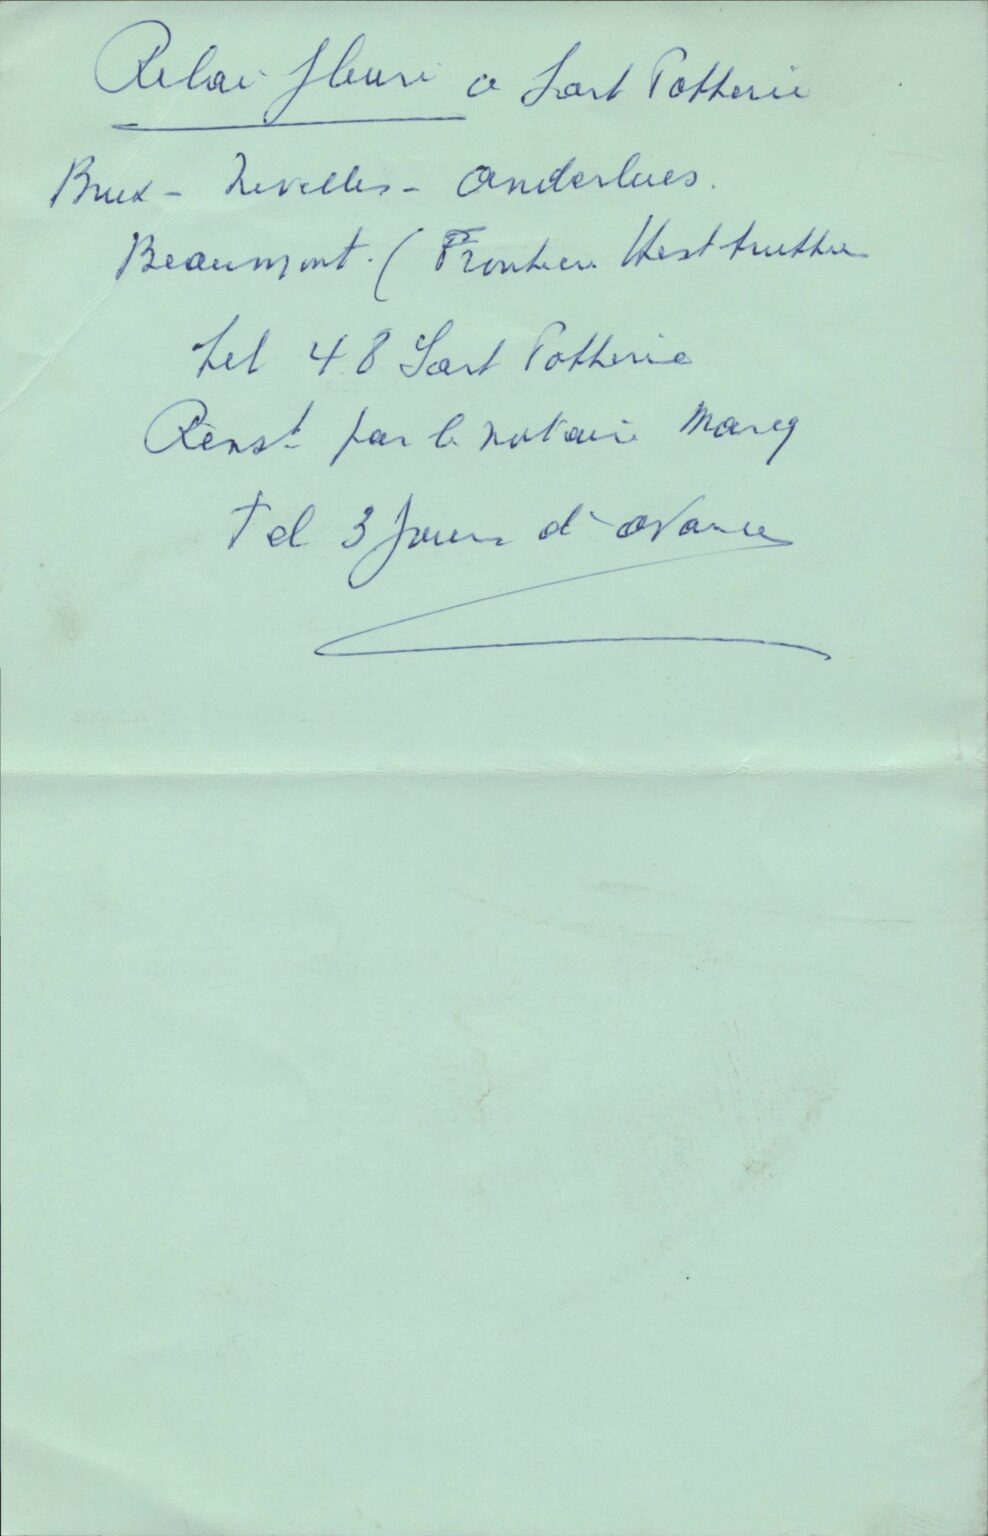 Relai fleuri a Sart Potterie
Brux - Nivelles - Anderlues.
Beaumont. ( Frontiere Hesttrutthe
tel 48 Sart Potterie
Renst par le notaire Marcq
Tel 3 jours d'avance